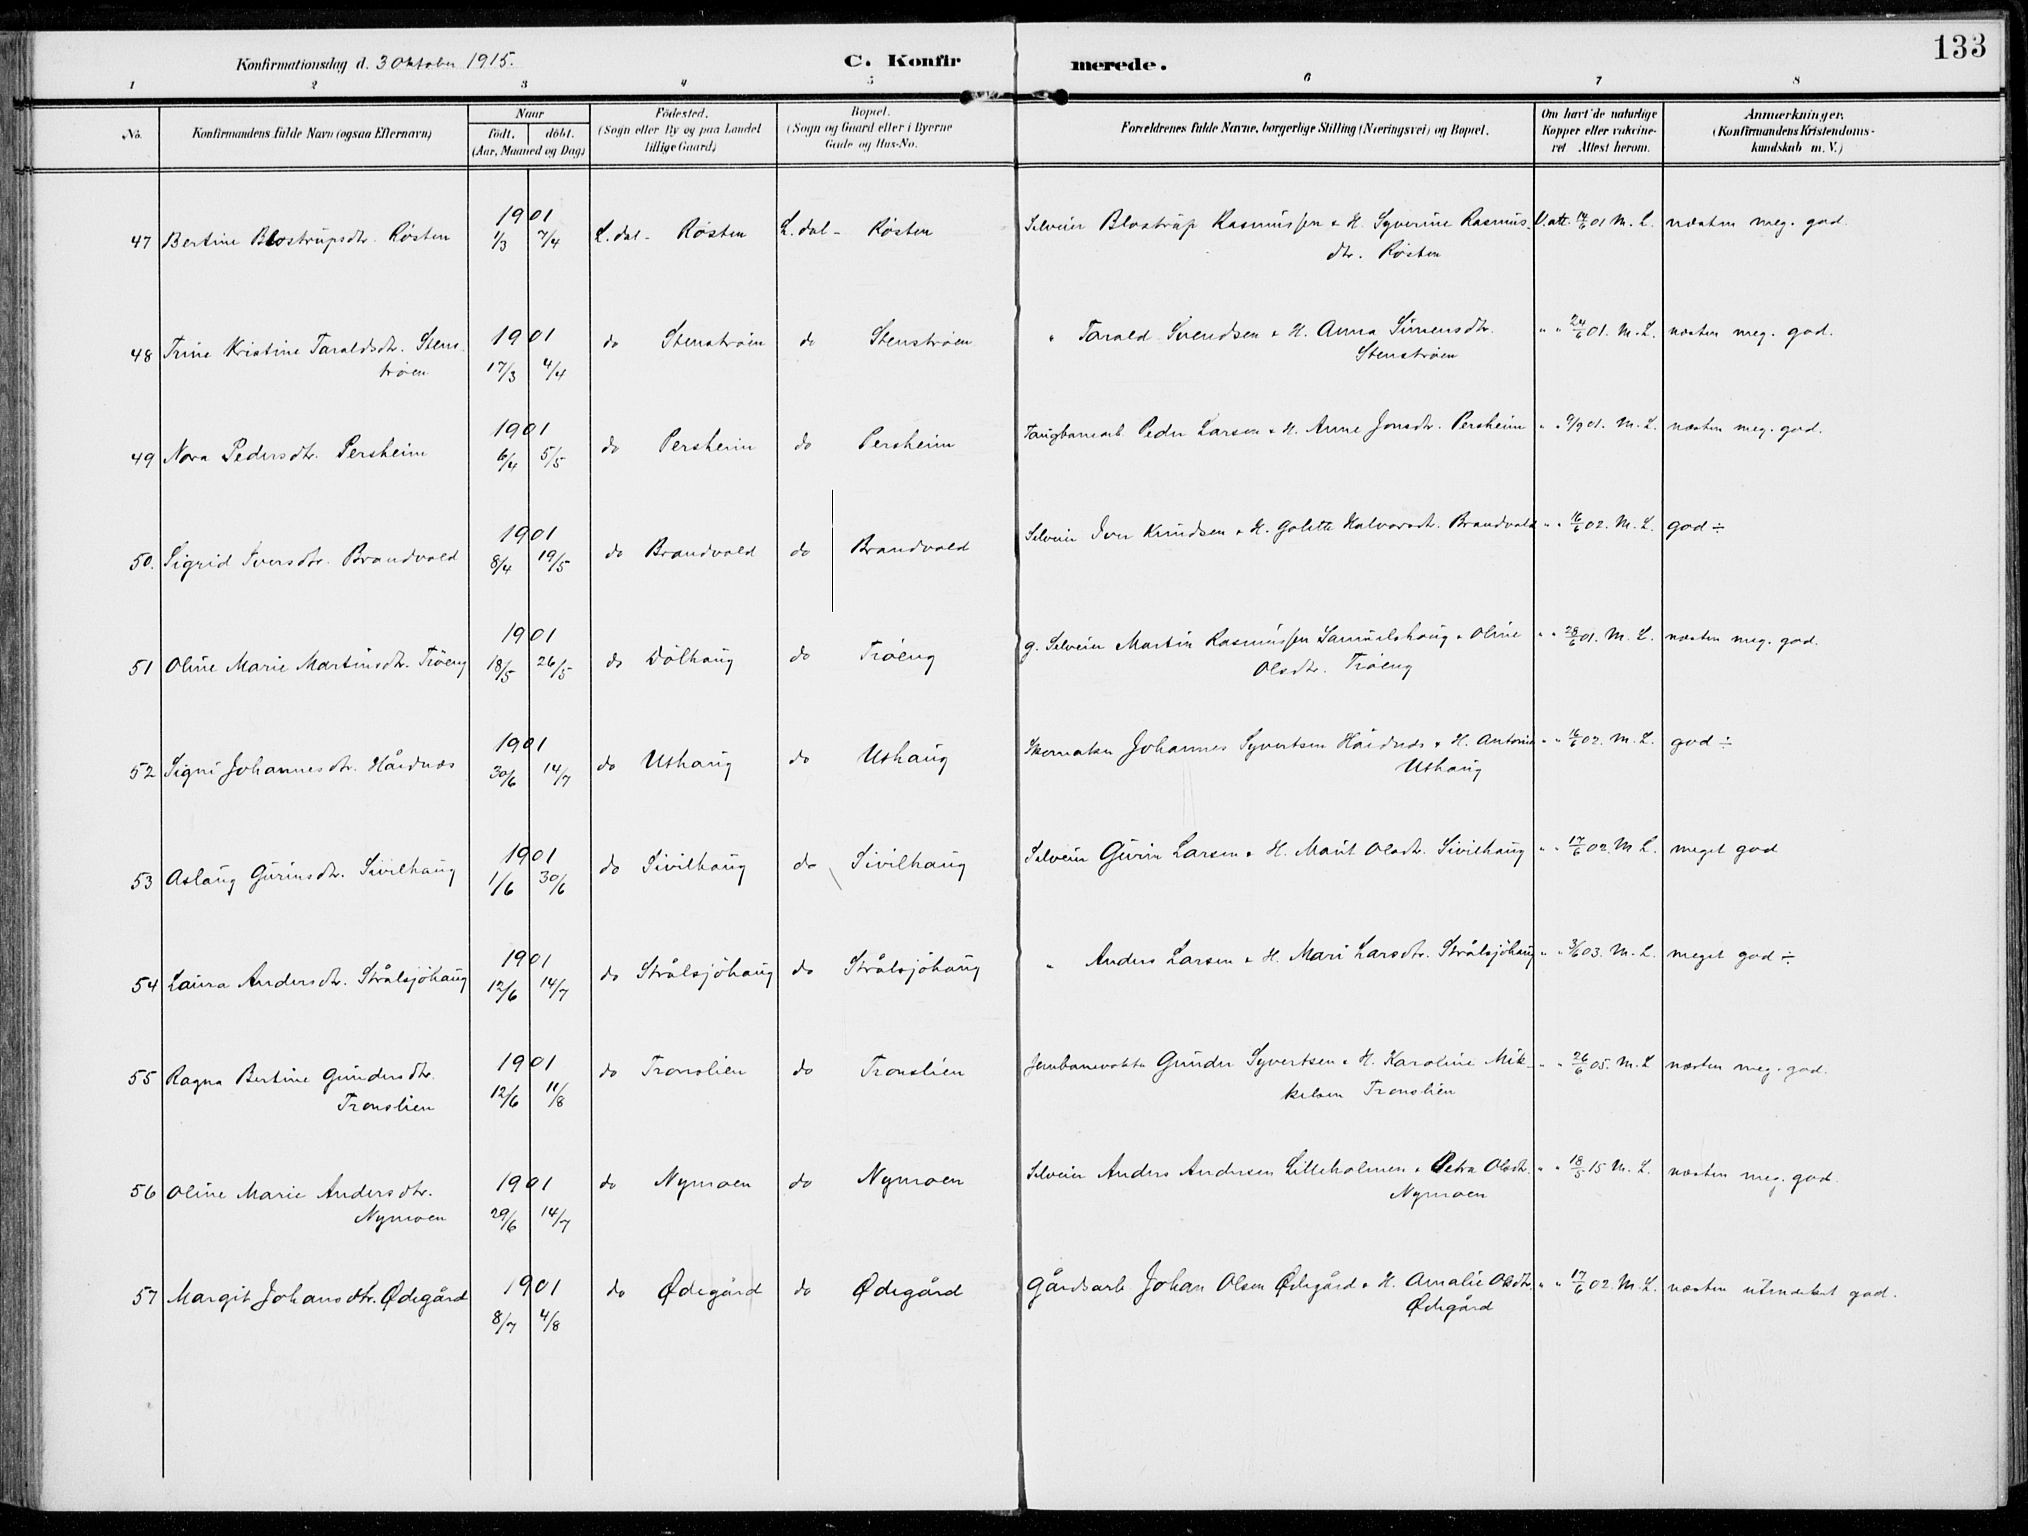 133
Konfirmationsdag d. 3 Oktober 1915.
C. Konfirmerede.
1 2 3 4 5 6 7 8
No. Konfirmandens fulde Navn (ogsaa Efternavn) Naar født, döbt. (Aar, Maaned og Dag) Födested. (Sogn eller By og paa Landet tillige Gaard) Bopæl. (Sogn og Gaard eller i Byerne Gade og Hus-No. Forældrenes fulde Navne, borgerlige Stilling (Næringsvei) og Bopæl. Om havt de naturlige Kopper eller vakcineret Attest herom. Anmærkninger, (Konfirmandens Kristendomskundskab m. V.)
47 Bertine Blostrupsdtr. Røsten 1901 1/3 7/4 L.dal - Røsten L.dal - Røsten Selveier Blostrup Rasmussen & H. Syverine Rasmusdtr. Røsten V. att. 14/6 01 M. L. næsten meg. god.
48 Trine Kristine Taraldsdtr. Stenstrøen 1901 17/3 4/4 do Stenstrøen do Stenstrøen " Tarald Svendsen & H. Anna Simensdtr. Stenstrøen " " 24/6 01. M. L. næsten meg. god.
49 Nora Pedersdtr. Persheim 1901 6/4 5/5 do Persheim do Persheim Peder Larsen & H. Anne Jonsdtr. Persheim " " 9/9 01. M. L. næsten meg. god.
50. Sigrid Iversdtr. Brandvold 1901 8/4 19/5 do Brandvold do Brandvold Selveier Iver Knudsen & H. Golette Halvorsdtr. Brandvold " " 16/6 02. M. L. god ÷
51 Oline Marie Martinsdtr. Trøeng 1901 18/5 26/5 do Dölhaug do Trøeng g. Selveier Martin Rasmussen Samuelshaug & Oline Olsdtr. Trøeng " " 28/6 01. M. L. næsten meg. god.
52 Signi Johannesdtr. Håidnæs 1901 30/6 14/7 do Uthaug do Uthaug Skomaker Johannes Syvertsen Håidnæs & H. Antonie Uthaug " " 16/6 02. M. L. god ÷
53 Aslaug Gurinsdtr. Sivilhaug 1901 1/6 30/6 do Sivilhaug do Sivilhaug Selveier Gurin Larsen & H. Marit Olsdtr. Sivilhaug " " 17/6 02. M. L. meget god
54 Laura Andersdtr. Strålsjöhaug 1901 12/6 14/7 do Strålsjöhaug do Strålsjöhaug " Anders Larsen & H. Mari Larsdtr. Strålsjöhaug " " 3/6 03. M. L. meget god ÷
55 Ragna Bertine Gundersdtr. Tronslien 1901 12/6 11/8 do Tronslien do Tronslien Jernbanevokter Gunder Syvertsen & H. Karoline Mikkelsen Tronslien " " 26/6 05. M. L næsten meg. god.
56 Oline Marie Andersdtr. Nymoen 1901 29/6 14/7 do Nymoen do Nymoen Selveier Anders Andersen Lilleholmen & Petra Olsdtr. Nymoen " " 18/5 15 M. L. næsten meg. god.
57 Margit Johansdtr. Ødegård 1901 8/7 4/8 do Ødegård do Ødegård Gårdsarb Johan Olsen Ødegård & H. Amalie Olsdtr. Ødegård " " 17/6 02. M. L. næsten utmerket god.